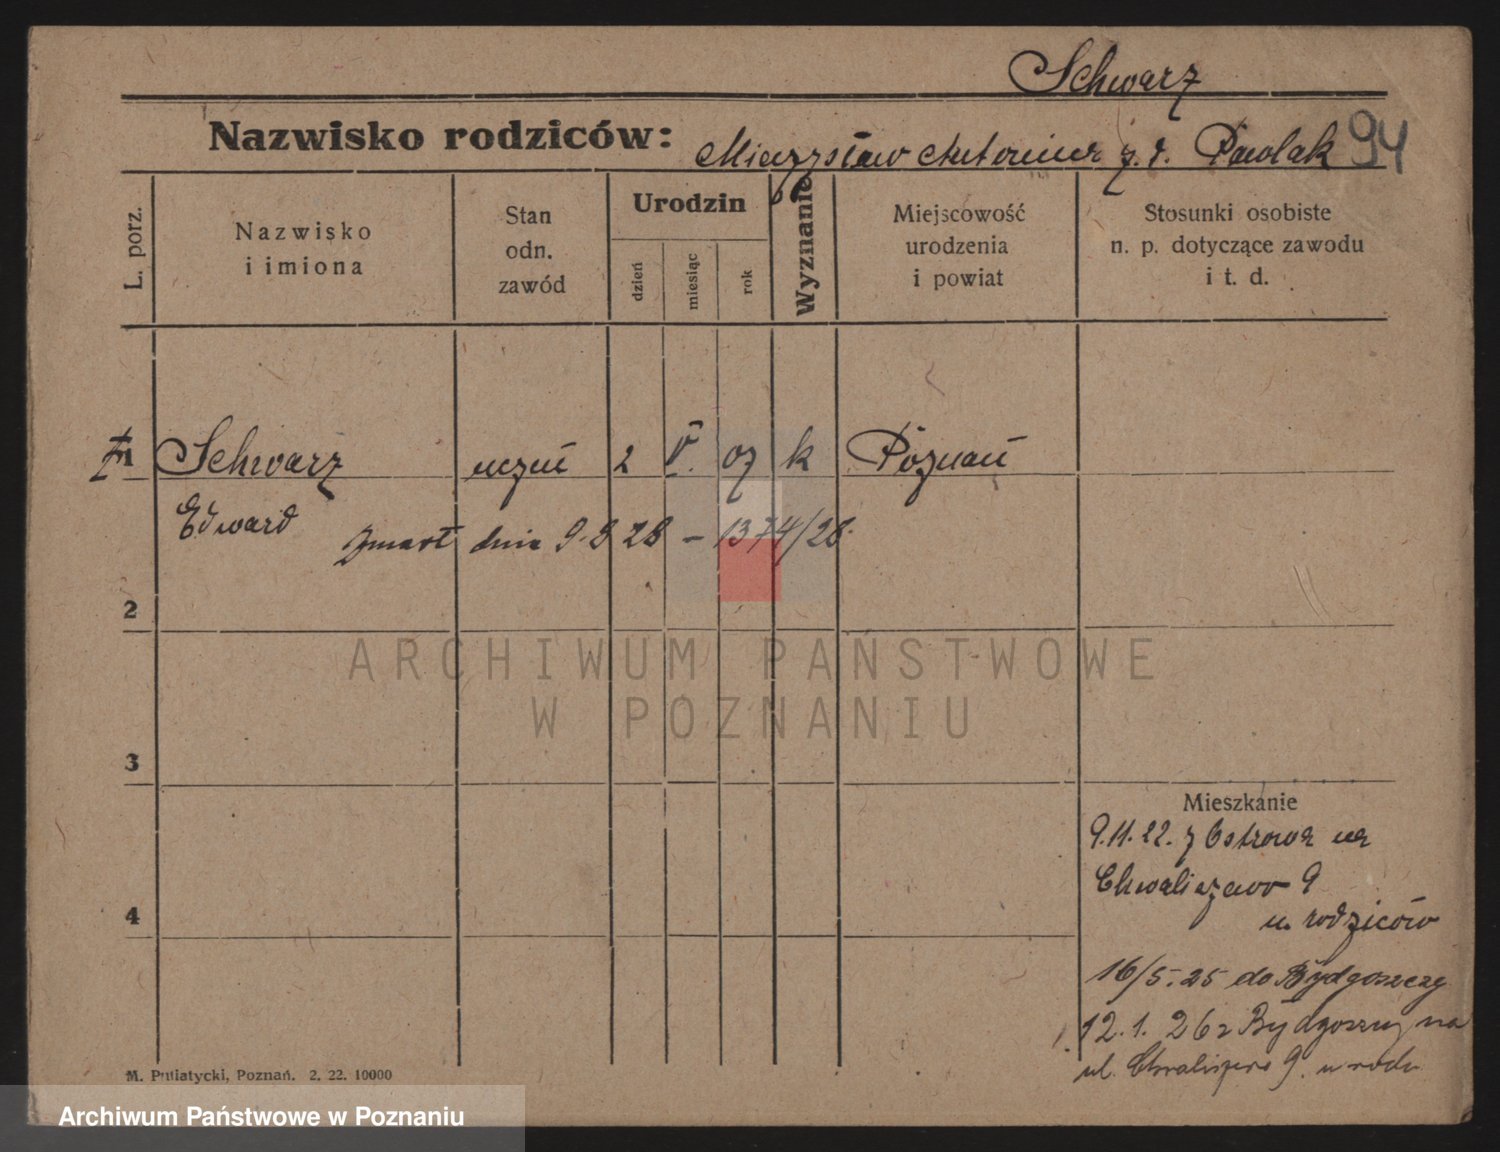 Schwarz
Nazwisko rodziców: Mieczysław Antonina z. d. Pawlak 94
L. porz.
Nazwisko
i imiona
Stan
odn.
zawód
Urodzin
dzień
miesiąc
rok
Wyznanie
Miejscowość
urodzenia
i powiat
Stosunki osobiste
n. p. dotyczące zawodu
i t. d.
1 Schwarz uczeń 2 V. 07 k Poznań
Edward
zmarł dnia 9.9 28 – 1374/28.
2
ARCHIWUM PAŃSTWOWE
W POZNANIU
3
Mieszkanie
9.11.22. z Ostrowa na
Chwaliszewo 9
u. rodziców
4
16/5.25 do Bydgoszczy
12.1. 26 z Bydgoszczy na
ul. Chwaliszewo 9. u rodz.
M. Putiatycki, Poznań. 2. 22. 10000
Archiwum Państwowe w Poznaniu